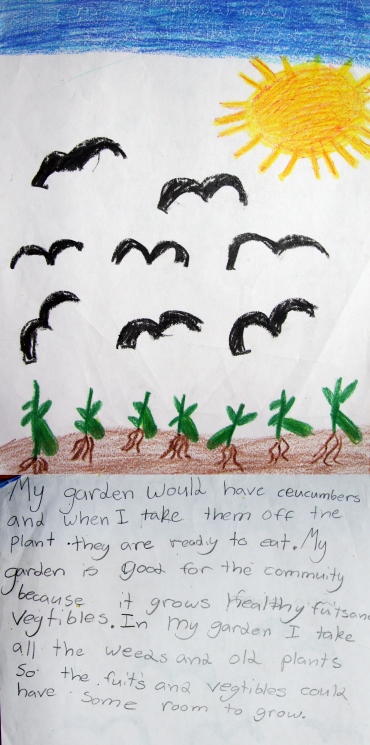 My garden would have ceucumbers
and when I take them off the
plant they are ready to eat. My
garden is good for the commuity
because it grows healthy fuits and
vegtibles. In my garden I take
all the weeds and old plants
So the fuits and vegtibles could
have some room to grow.